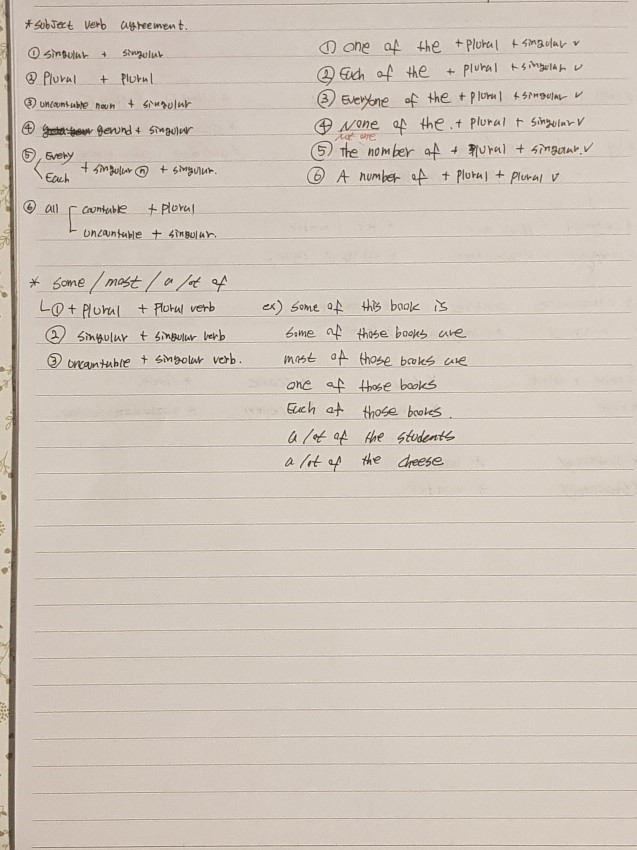 * Subject verb agreement.
① singular + singular
② Plural + Plural
③ uncountable noun + singular
④ gerund + singular
⑤ Every
Each + singular ⓝ + singular.
⑥ all countable + plural
uncountable + singular.
① One of the + plural + singular v
② Each of the + plural + singular v
③ Everyone of the + plural + singular v
④ None of the + plural + singular v
not one
⑤ The number of + plural + singular v
⑥ A number of + plural + plural v
* some / most / a lot of
① + plural + plural verb
② singular + singular verb
③ uncountable + singular verb.
ex) some of this book is
some of those books are
most of those books are
one of those books
Each of those books.
a lot of the students
a lot of the cheese